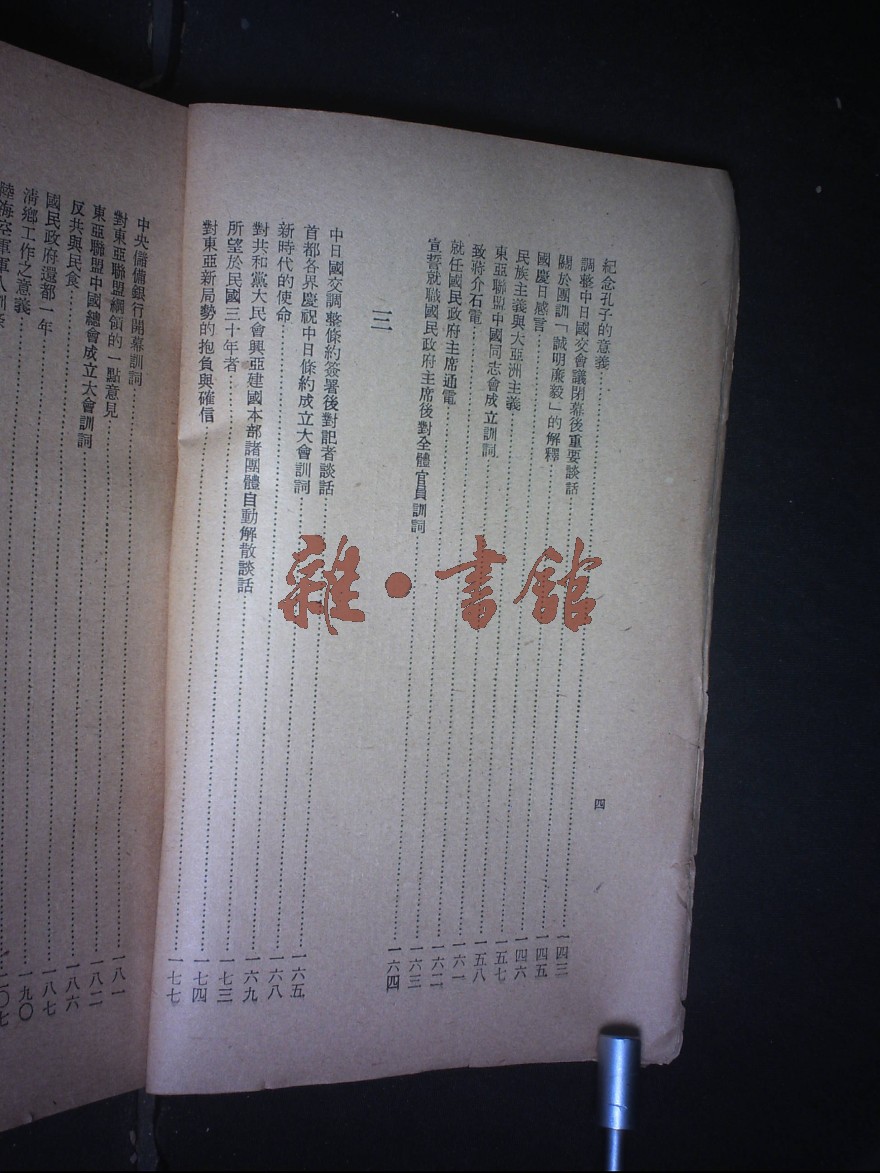 四
紀念孔子的意義……一四三
調整中日國交會議閉幕後重要談話……一四五
關於團訓「誠明廉毅」的解釋……一四六
國慶日感言……一五七
民族主義與大亞洲主義……一五八
東亞聯盟中國同志會成立訓詞……一六一
致蔣介石電……一六二
就任國民政府主席通電……一六三
宣誓就職國民政府主席後對全體官員訓詞……一六四
三
中日國交調整條約簽署後對記者談話……一六五
首都各界慶祝中日條約成立大會訓詞……一六八
新時代的使命……一六九
對共和黨大民會興亞建國本部諸團體自動解散談話……一七三
所望於民國三十年者……一七四
對東亞新局勢的抱負與確信……一七七
中央儲備銀行開幕訓詞……一八一
對東亞聯盟綱領的一點意見……一八二
東亞聯盟中國總會成立大會訓詞……一八六
反共與民食……一八七
國民政府還都一年……一九〇
清鄉工作之意義……二〇七
陸海空軍軍人訓條
雜·書館